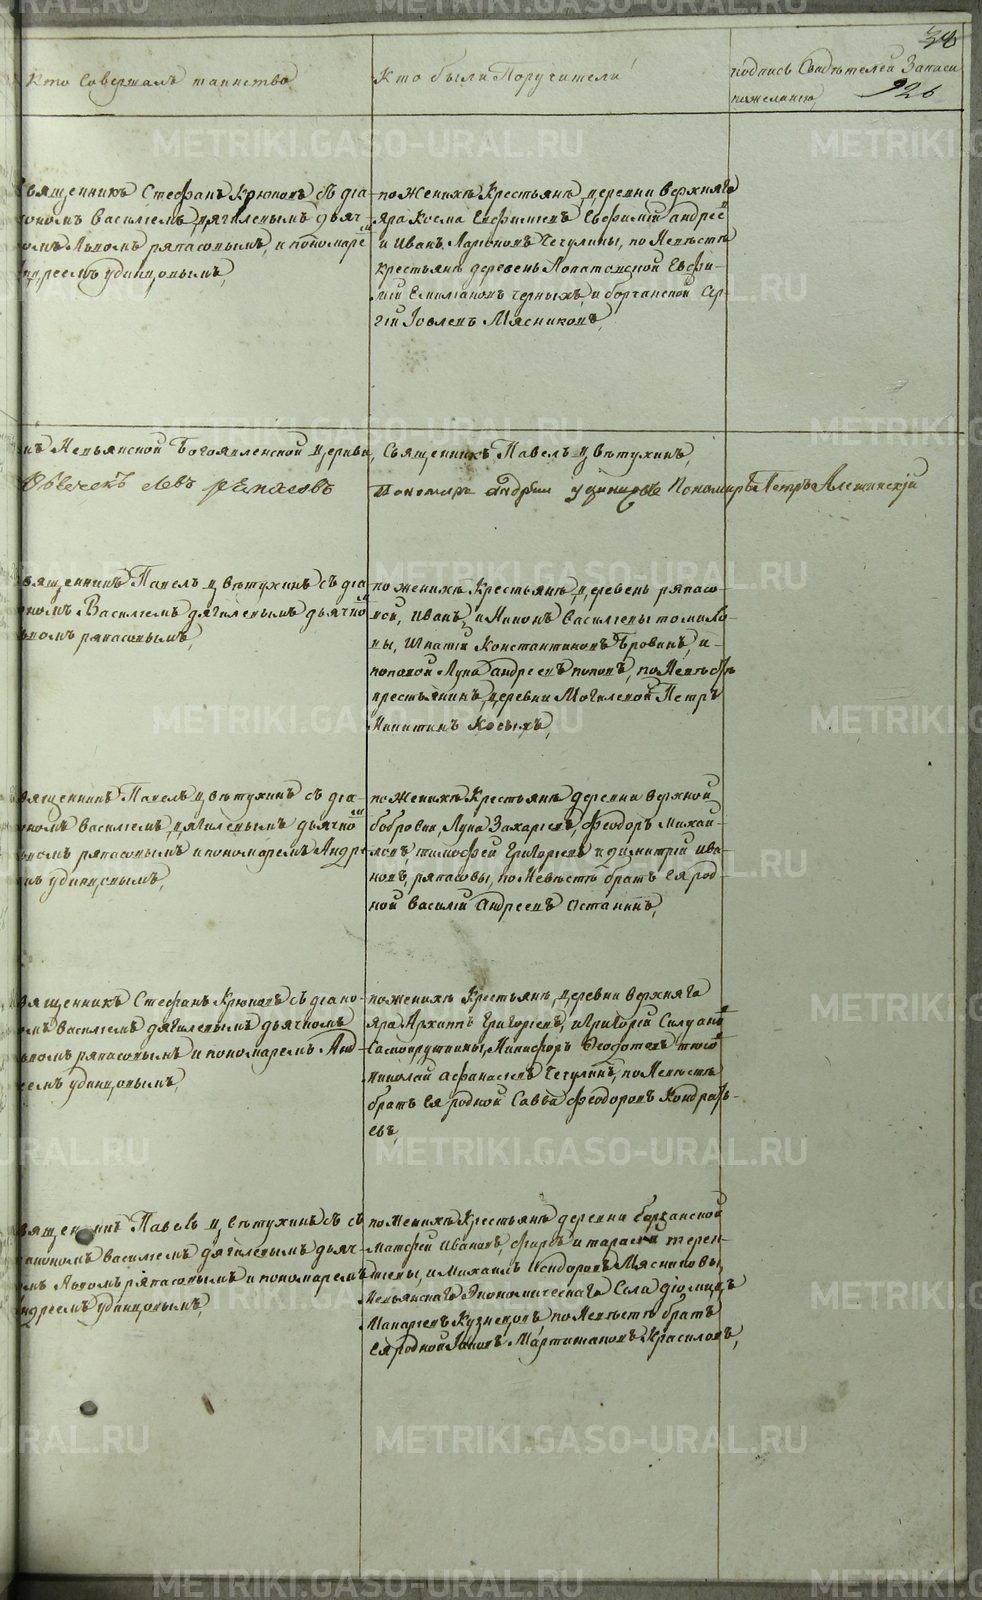 38
926
Кто Совершалъ таинство
Кто были Поручители
подпись Свидѣтелей Записи
по желанию
Священникъ Стефанъ Крюковъ съ діа-
кономъ Василіемъ Дягилевымъ дьяч-
комъ Львомъ ряпасовымъ, и пономаре
Андреемъ удинцовымъ,
по Женихѣ Крестьянѣ деревни Верхняго
Яра Косма Евфимiевъ Евфимій андреев
и Иванъ Ларионовъ Чечулины, по Невѣстѣ
крестьянѣ деревень Лопатовской Евфи-
мій Емилiановъ черныхъ, и борчанской Сер-
гій Іовлевъ Мясниковъ,
Невьянской Богоявленской Церкви, Священникъ Павелъ Цвѣтухинъ,
левъ ряпасовъ Пономарь андрей удинцовъ Пономарь Петръ
Священникъ Павелъ Цвѣтухинъ съ діа
кономъ Василіемъ дягилевымъ дьячко
Львомъ ряпасовымъ,
по женихѣ Крестьянѣ, деревень ряпасо-
вой, Иванъ, и Василіевы томило-
вы, Игнатій Константиновъ Бровинъ, и
поповой Лука андреевъ поповъ, по Невѣстѣ
крестьянинъ, деревни Могилевой Петръ
Никитинъ Косыхъ,
Священникъ Павелъ Цвѣтухинъ съ діа-
кономъ Василіемъ, дягилевымъ дьячко
Львомъ ряпасовымъ и пономаремъ Андре
емъ удинцовымъ,
по Женихѣ Крестьянѣ деревни Верхной
бобровки, Лука Захаріевъ, Феодоръ Михаи-
ловъ, тимофей Григоріевъ и димитрій Ива-
новъ, ряпасовы, по Невѣстѣ братъ Ея род-
ной Василій Андреевъ Останинъ,
Священникъ Стефанъ Крюковъ съ діако-
омъ Василіемъ дягилевымъ дьячкомъ
Львомъ ряпасовымъ и пономаремъ Анд-
реемъ удинцовымъ,
по женихѣ Крестьянѣ, деревни Верхняго
Яра Архипъ Григоріевъ, и Григорій Силуанов
Самокруткины, Никифоръ Феодотов тиго
Николай афанасіевъ Чечулинъ, по Невѣстѣ
братъ Ея родной Савва Феодоровъ Кондрать-
евъ,
Священникъ Павелъ Цвѣтухинъ съ
діакономъ Василіемъ дягилевымъ дьяч-
комъ Львомъ ряпасовымъ и пономаремъ
Андреемъ удинцовымъ,
по Женихѣ Крестьянѣ деревни борчанской
Матфей Ивановъ, фирсъ и тарасій терен-
тіевы, и Михаилъ Исидоровъ Мясниковы,
Невьянскаго Экономическаго Села діомидъ
Макаріевъ Кузнецовъ, по Невѣстѣ братъ
Ея родной Іаковъ Мартиніановъ Красиловъ,
METRIKI.GASO-URAL.RU